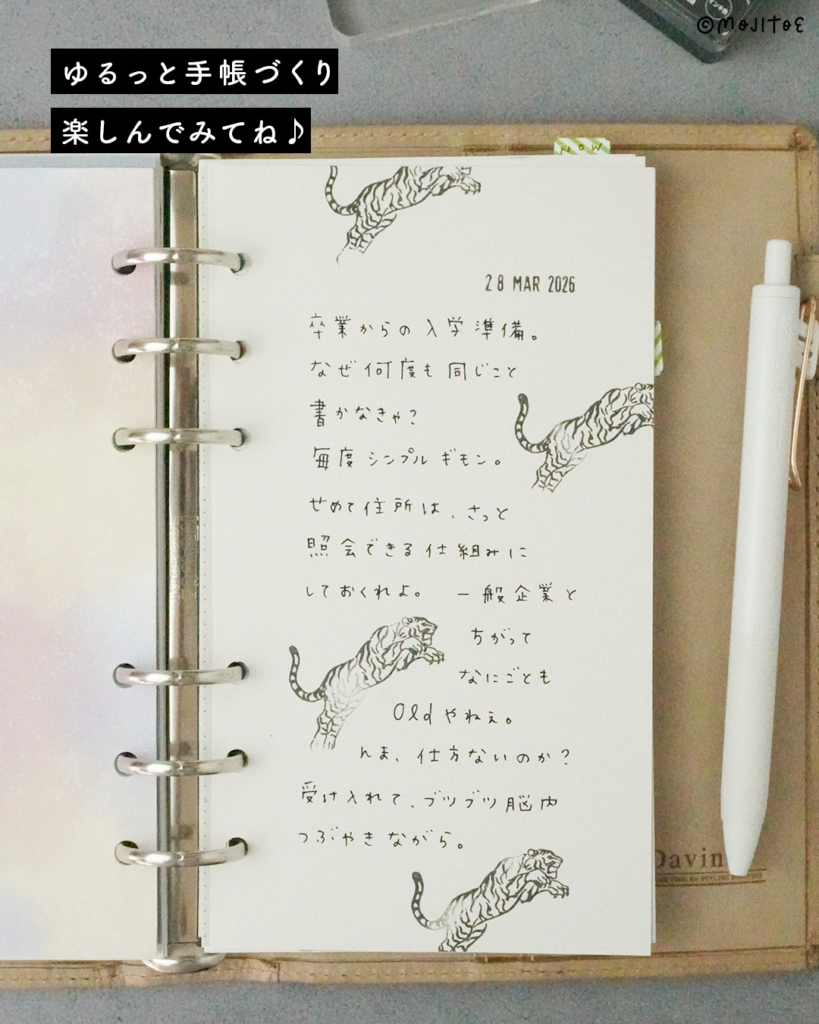 ©MOJITOE
ゆるっと手帳づくり
楽しんでみてね♪
NOW
28 MAR 2026
卒業からの入学準備。
なぜ何度も同じこと
書かなきゃ？
毎度シンプルギモン。
せめて住所は、さっと
照会できる仕組みに
しておくれよ。 一般企業と
ちがって
なにごとも
Oldやねぇ。
んま、仕方ないのか？
受け入れて、ブツブツ脳内
つぶやきながら。
Davin